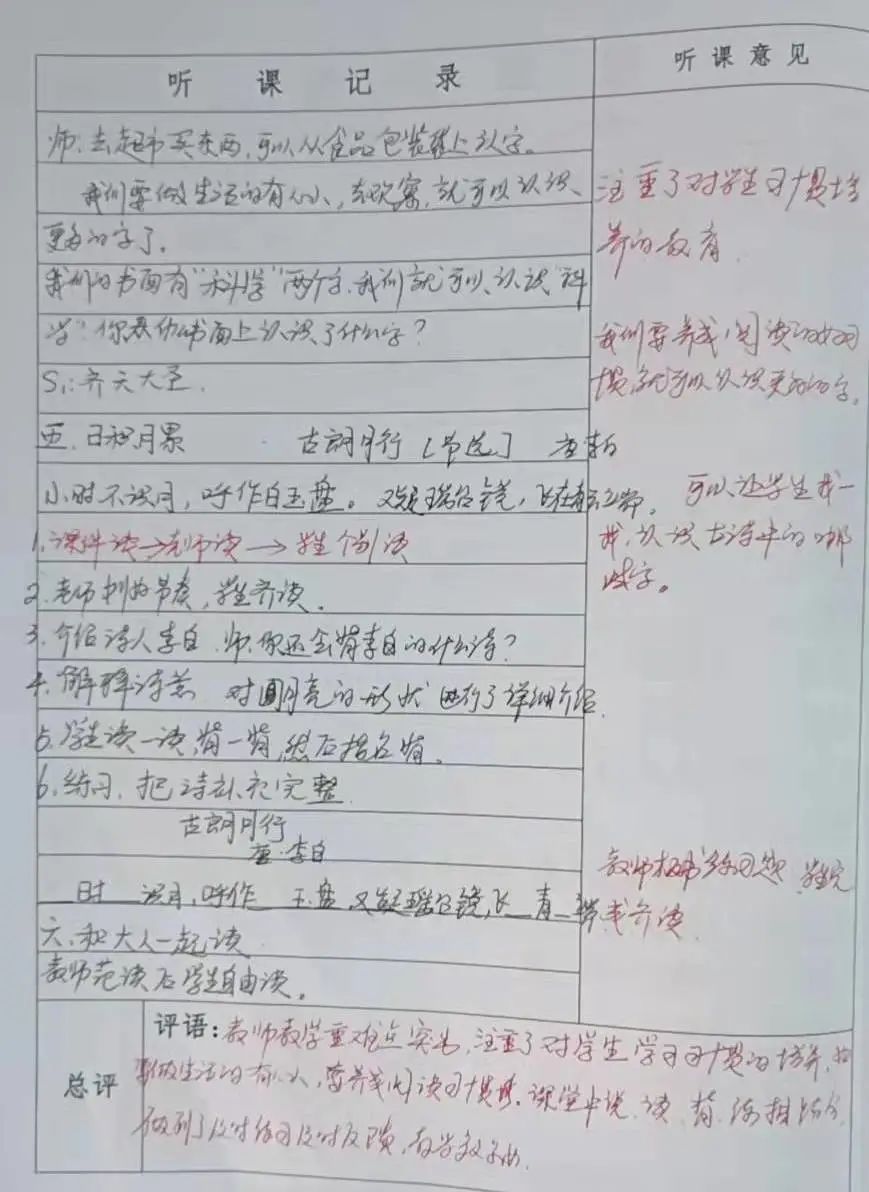 听课记录
听课意见
师:去超市买东西,可以从食品包装袋上认字。
我们要做生活的有心人,去观察,就可以认识
更多的字了。
我们的书面有“科学”两个字.我们就可以认识“科
学”你在书面上认识了什么字?
S₁:齐天大圣.
五.日积月累 古朗月行[节选] 唐李白
小时不识月,呼作白玉盘。又疑瑶台镜,飞在青云端。
1.课件读→老师读→学生个别读
2.老师打节奏,学生齐读.
3.介绍诗人李白.师:你还会背李白的什么诗?
4.解释诗意 对圆月亮的形状进行了详细介绍.
5.学生读一读,背一背,然后指名背.
6.练习.把诗补充完整.
古朗月行
唐·李白
时 识月,呼作 玉盘,又疑瑶台镜,飞 青 端
六.和大人一起读
教师范读后学生自由读。
注重了对学生习惯培
养的教育.
我们要养成阅读的好习
惯,就可以认识更多的字。
可以让学生找一
找,认识古诗中的哪
些字。
教师板书练习题,学生完
成齐读.
总评
评语:教师教学重难点突出,注重了对学生学习习惯的培养,
要做生活的有心人,要养成阅读习惯.课堂中说、读、背、练相结合,
做到了及时练习及时反馈,教学效果好.